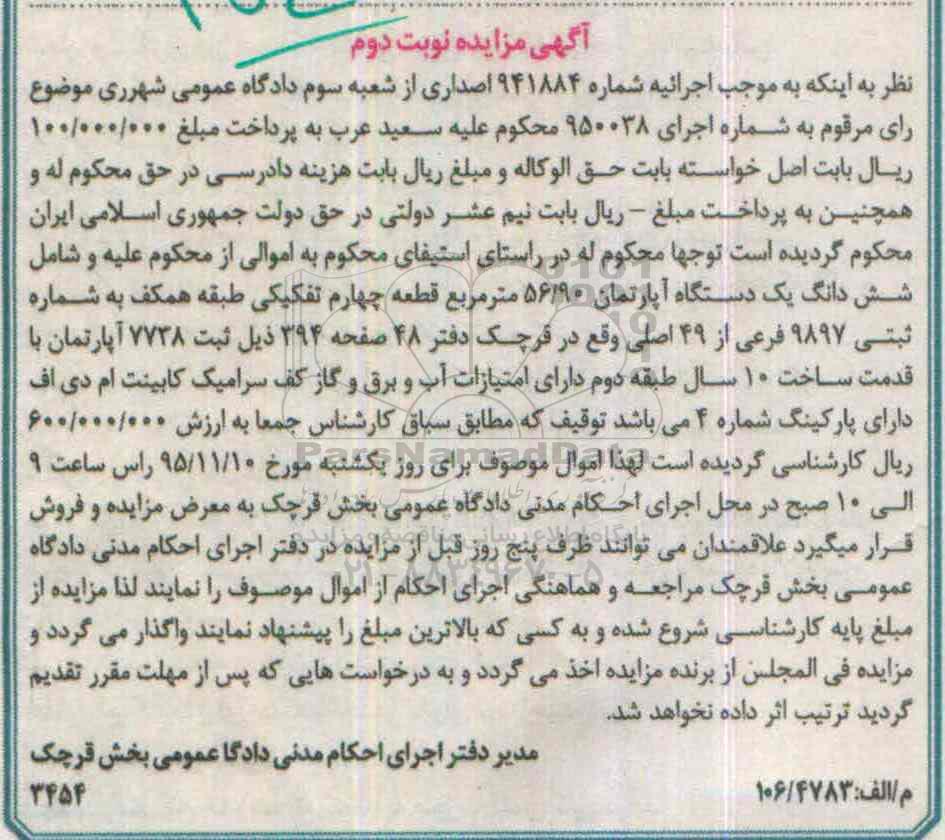 آگهی مزایده نوبت دوم
نظر به اینکه به موجب اجرائیه شماره ۹۴۱۸۸۴ اصداری از شعبه سوم دادگاه عمومی شهرری موضوع
رای مرقوم به شماره اجرای ۹۵۰۰۳۸ محکوم علیه سعید عرب به پرداخت مبلغ ۱۰۰/۰۰۰/۰۰۰
ریال بابت اصل خواسته بابت حق الوکاله و مبلغ ریال بابت هزینه دادرسی در حق محکوم له و
همچنین به پرداخت مبلغ – ریال بابت نیم عشر دولتی در حق دولت جمهوری اسلامی ایران
محکوم گردیده است توجها محکوم له در راستای استیفای محکوم به اموالی از محکوم علیه و شامل
شش دانگ یک دستگاه آپارتمان ۵۶/۹۰ مترمربع قطعه چهارم تفکیکی طبقه همکف به شماره
ثبتی ۹۸۹۷ فرعی از ۴۹ اصلی وقع در قرچک دفتر ۴۸ صفحه ۳۹۴ ذیل ثبت ۷۷۳۸ آپارتمان با
قدمت ساخت ۱۰ سال طبقه دوم دارای امتیازات آب و برق و گاز کف سرامیک کابینت ام دی اف
دارای پارکینگ شماره ۴ می باشد توقیف که مطابق سباق کارشناس جمعا به ارزش ۶۰۰/۰۰۰/۰۰۰
ParsNamadData
ریال کارشناسی گردیده است لهذا اموال موصوف برای روز یکشنبه مورخ ۹۵/۱۱/۱۰ راس ساعت ۹
الی ۱۰ صبح در محل اجرای احکام مدنی دادگاه عمومی بخش قرچک به معرض مزایده و فروش
پایگاه اطلاع رسانی مناقصه و مزایده
قرار میگیرد علاقمندان می توانند ظرف پنج روز قبل از مزایده در دفتر اجرای احکام مدنی دادگاه
عمومی بخش قرچک مراجعه و هماهنگی اجرای احکام از اموال موصوف را نمایند لذا مزایده از
مبلغ پایه کارشناسی شروع شده و به کسی که بالاترین مبلغ را پیشنهاد نمایند واگذار می گردد و
مزایده فی المجلس از برنده مزایده اخذ می گردد و به درخواست هایی که پس از مهلت مقرر تقدیم
گردید ترتیب اثر داده نخواهد شد.
مدیر دفتر اجرای احکام مدنی دادگا عمومی بخش قرچک
م/الف:۱۰۶/۴۷۸۳
۳۴۵۴